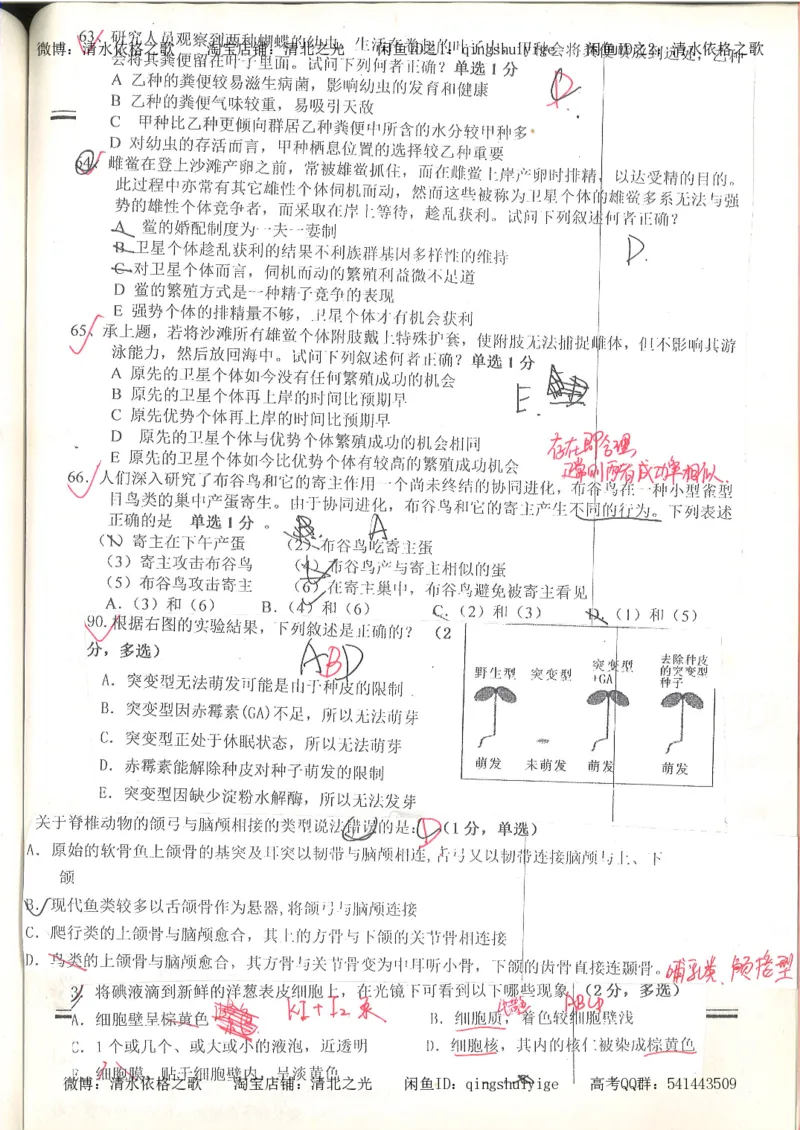 63. 研究人员观察到两种蝴蝶的幼虫，生活在卷起的叶子
微博：清水依格之歌 淘宝店铺：清北之光 闲鱼ID之1：qingshuiyige 闲鱼ID之2：清水依格之歌
会将其粪便留在叶子里面。试问下列何者正确？单选 1 分
A 乙种的粪便较易滋生病菌，影响幼虫的发育和健康
D
B 乙种的粪便气味较重，易吸引天敌
C 甲种比乙种更倾向群居乙种粪便中所含的水分较甲种多
D 对幼虫的存活而言，甲种栖息位置的选择较乙种重要
64. 雌鲎在登上沙滩产卵之前，常被雄鲎抓住，而在雌鲎上岸产卵时排精，以达受精的目的。
此过程中亦常有其它雄性个体伺机而动，然而这些被称为卫星个体的雄鲎多系无法与强
势的雄性个体竞争者，而采取在岸上等待，趁乱获利。试问下列叙述何者正确？
A 鲎的婚配制度为一夫一妻制
B 卫星个体趁乱获利的结果不利族群基因多样性的维持
D.
C 对卫星个体而言，伺机而动的繁殖利益微不足道
D 鲎的繁殖方式是一种精子竞争的表现
E 强势个体的排精量不够，卫星个体才有机会获利
65. 承上题，若将沙滩所有雄鲎个体附肢戴上特殊护套，使附肢无法捕捉雌体，但不影响其游
泳能力，然后放回海中。试问下列叙述何者正确？单选 1 分
A 原先的卫星个体如今没有任何繁殖成功的机会
B 原先的卫星个体再上岸的时间比预期早
E.
C 原先优势个体再上岸的时间比预期早
D 原先的卫星个体与优势个体繁殖成功的机会相同
存在即合理
E 原先的卫星个体如今比优势个体有较高的繁殖成功机会
正常则两者成功率相似.
66. 人们深入研究了布谷鸟和它的寄主作用一个尚未终结的协同进化，布谷鸟在一种小型雀型
目鸟类的巢中产蛋寄生。由于协同进化，布谷鸟和它的寄主产生不同的行为。下列表述
正确的是 单选 1 分 。
A
（1）寄主在下午产蛋 （2）布谷鸟吃寄主蛋
（3）寄主攻击布谷鸟 （4）布谷鸟产与寄主相似的蛋
（5）布谷鸟攻击寄主 （6）在寄主巢中，布谷鸟避免被寄主看见
A.（3）和（6） B.（4）和（6） C.（2）和（3） D.（1）和（5）
90. 根据右图的实验结果，下列叙述是正确的？ （2
分，多选）
ABD
野生型 突变型 突变型+GA 去除种皮的突变型种子
萌发 未萌发 萌发 萌发
A. 突变型无法萌发可能是由于种皮的限制
B. 突变型因赤霉素(GA)不足，所以无法萌芽
C. 突变型正处于休眠状态，所以无法萌芽
D. 赤霉素能解除种皮对种子萌发的限制
E. 突变型因缺少淀粉水解酶，所以无法发芽
关于脊椎动物的颌弓与脑颅相接的类型说法错误的是: D （1 分，单选）
A. 原始的软骨鱼上颌骨的基突及耳突以韧带与脑颅相连,舌弓又以韧带连接脑颅与上、下
颌
B. 现代鱼类较多以舌颌骨作为悬器,将颌弓与脑颅连接
C. 爬行类的上颌骨与脑颅愈合，其上的方骨与下颌的关节骨相连接
D. 鸟类的上颌骨与脑颅愈合，其方骨与关节骨变为中耳听小骨，下颌的齿骨直接连颞骨。
哺乳类、颌接型
3. 将碘液滴到新鲜的洋葱表皮细胞上，在光镜下可看到以下哪些现象 （2 分，多选）
KI+I2 ABCD
A. 细胞壁呈棕黄色 B. 细胞质，着色较细胞壁浅
C. 1 个或几个、或大或小的液泡，近透明 D. 细胞核，其内的核仁被染成棕黄色
E. 细胞膜，贴于细胞壁内，呈淡黄色
微博：清水依格之歌 淘宝店铺：清北之光 闲鱼ID：qingshuiyige 高考QQ群：541443509